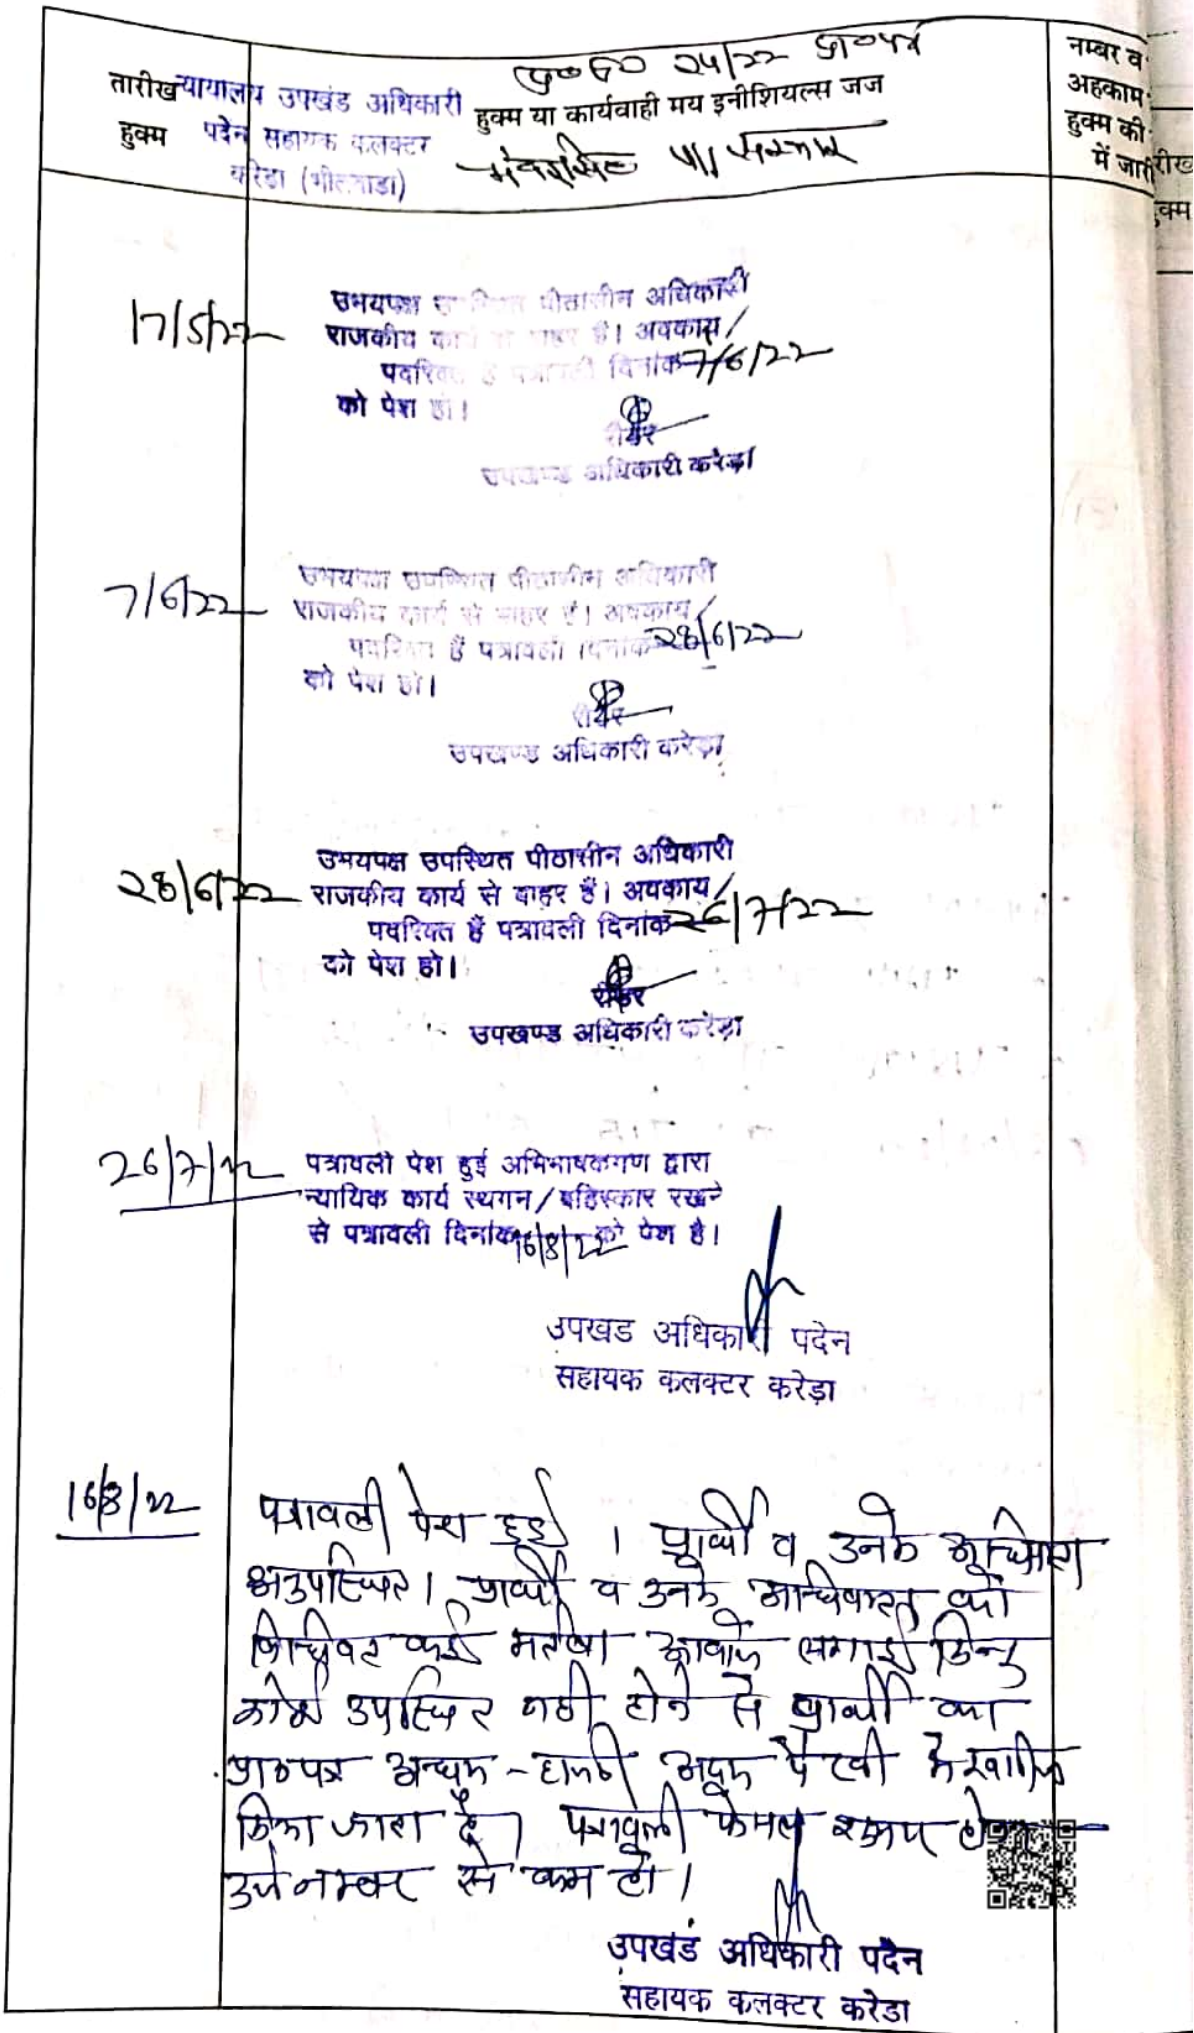 प्र०सं० 24/22 प्रा०पत्र
तारीख
हुक्म
न्यायालय उपखंड अधिकारी
पदेन सहायक कलक्टर
करेडा (भीलवाडा)
हुक्म या कार्यवाही मय इनीशियल्स जज
सरकार
नम्बर व
अहकाम
हुक्म की
में जारी
रीख
क्म
17/5/22
उभयपक्ष उपस्थित पीठासीन अधिकारी
राजकीय कार्य से बाहर है। अवकाश/
पदरिक्त है पत्रावली दिनांक 7/6/22
को पेश हो।
रीडर
उपखण्ड अधिकारी करेड़ा
7/6/22
उभयपक्ष उपस्थित पीठासीन अधिकारी
राजकीय कार्य से बाहर है। अवकाश/
पदरिक्त हैं पत्रावली दिनांक 28/6/22
को पेश हो।
रीडर
उपखण्ड अधिकारी करेड़ा
28/6/22
उभयपक्ष उपस्थित पीठासीन अधिकारी
राजकीय कार्य से बाहर हैं। अवकाश/
पदरिक्त हैं पत्रावली दिनांक 26/7/22
को पेश हो।
रीडर
उपखण्ड अधिकारी करेड़ा
26/7/22
पत्रावली पेश हुई अभिभाषकगण द्वारा
न्यायिक कार्य स्थगन/बहिस्कार रखने
से पत्रावली दिनांक 16/8/22 को पेश है।
उपखड अधिकारी पदेन
सहायक कलक्टर करेड़ा
16/8/22
पत्रावली पेश हुई । प्रार्थी व उनके
अनुपस्थित। प्रार्थी व उनके अधिवक्ता को
कई मर्तबा आवाजे लगाई किन्तु
कोई उपस्थित नही होने से प्रार्थी का
प्रा०पत्र अदम - हाजरी अदम पैरवी मे खारीज
किया जाता है। पत्रावली फैसल शुमार होकर
नम्बर से कम हो।
उपखंड अधिकारी पदेन
सहायक कलक्टर करेडा